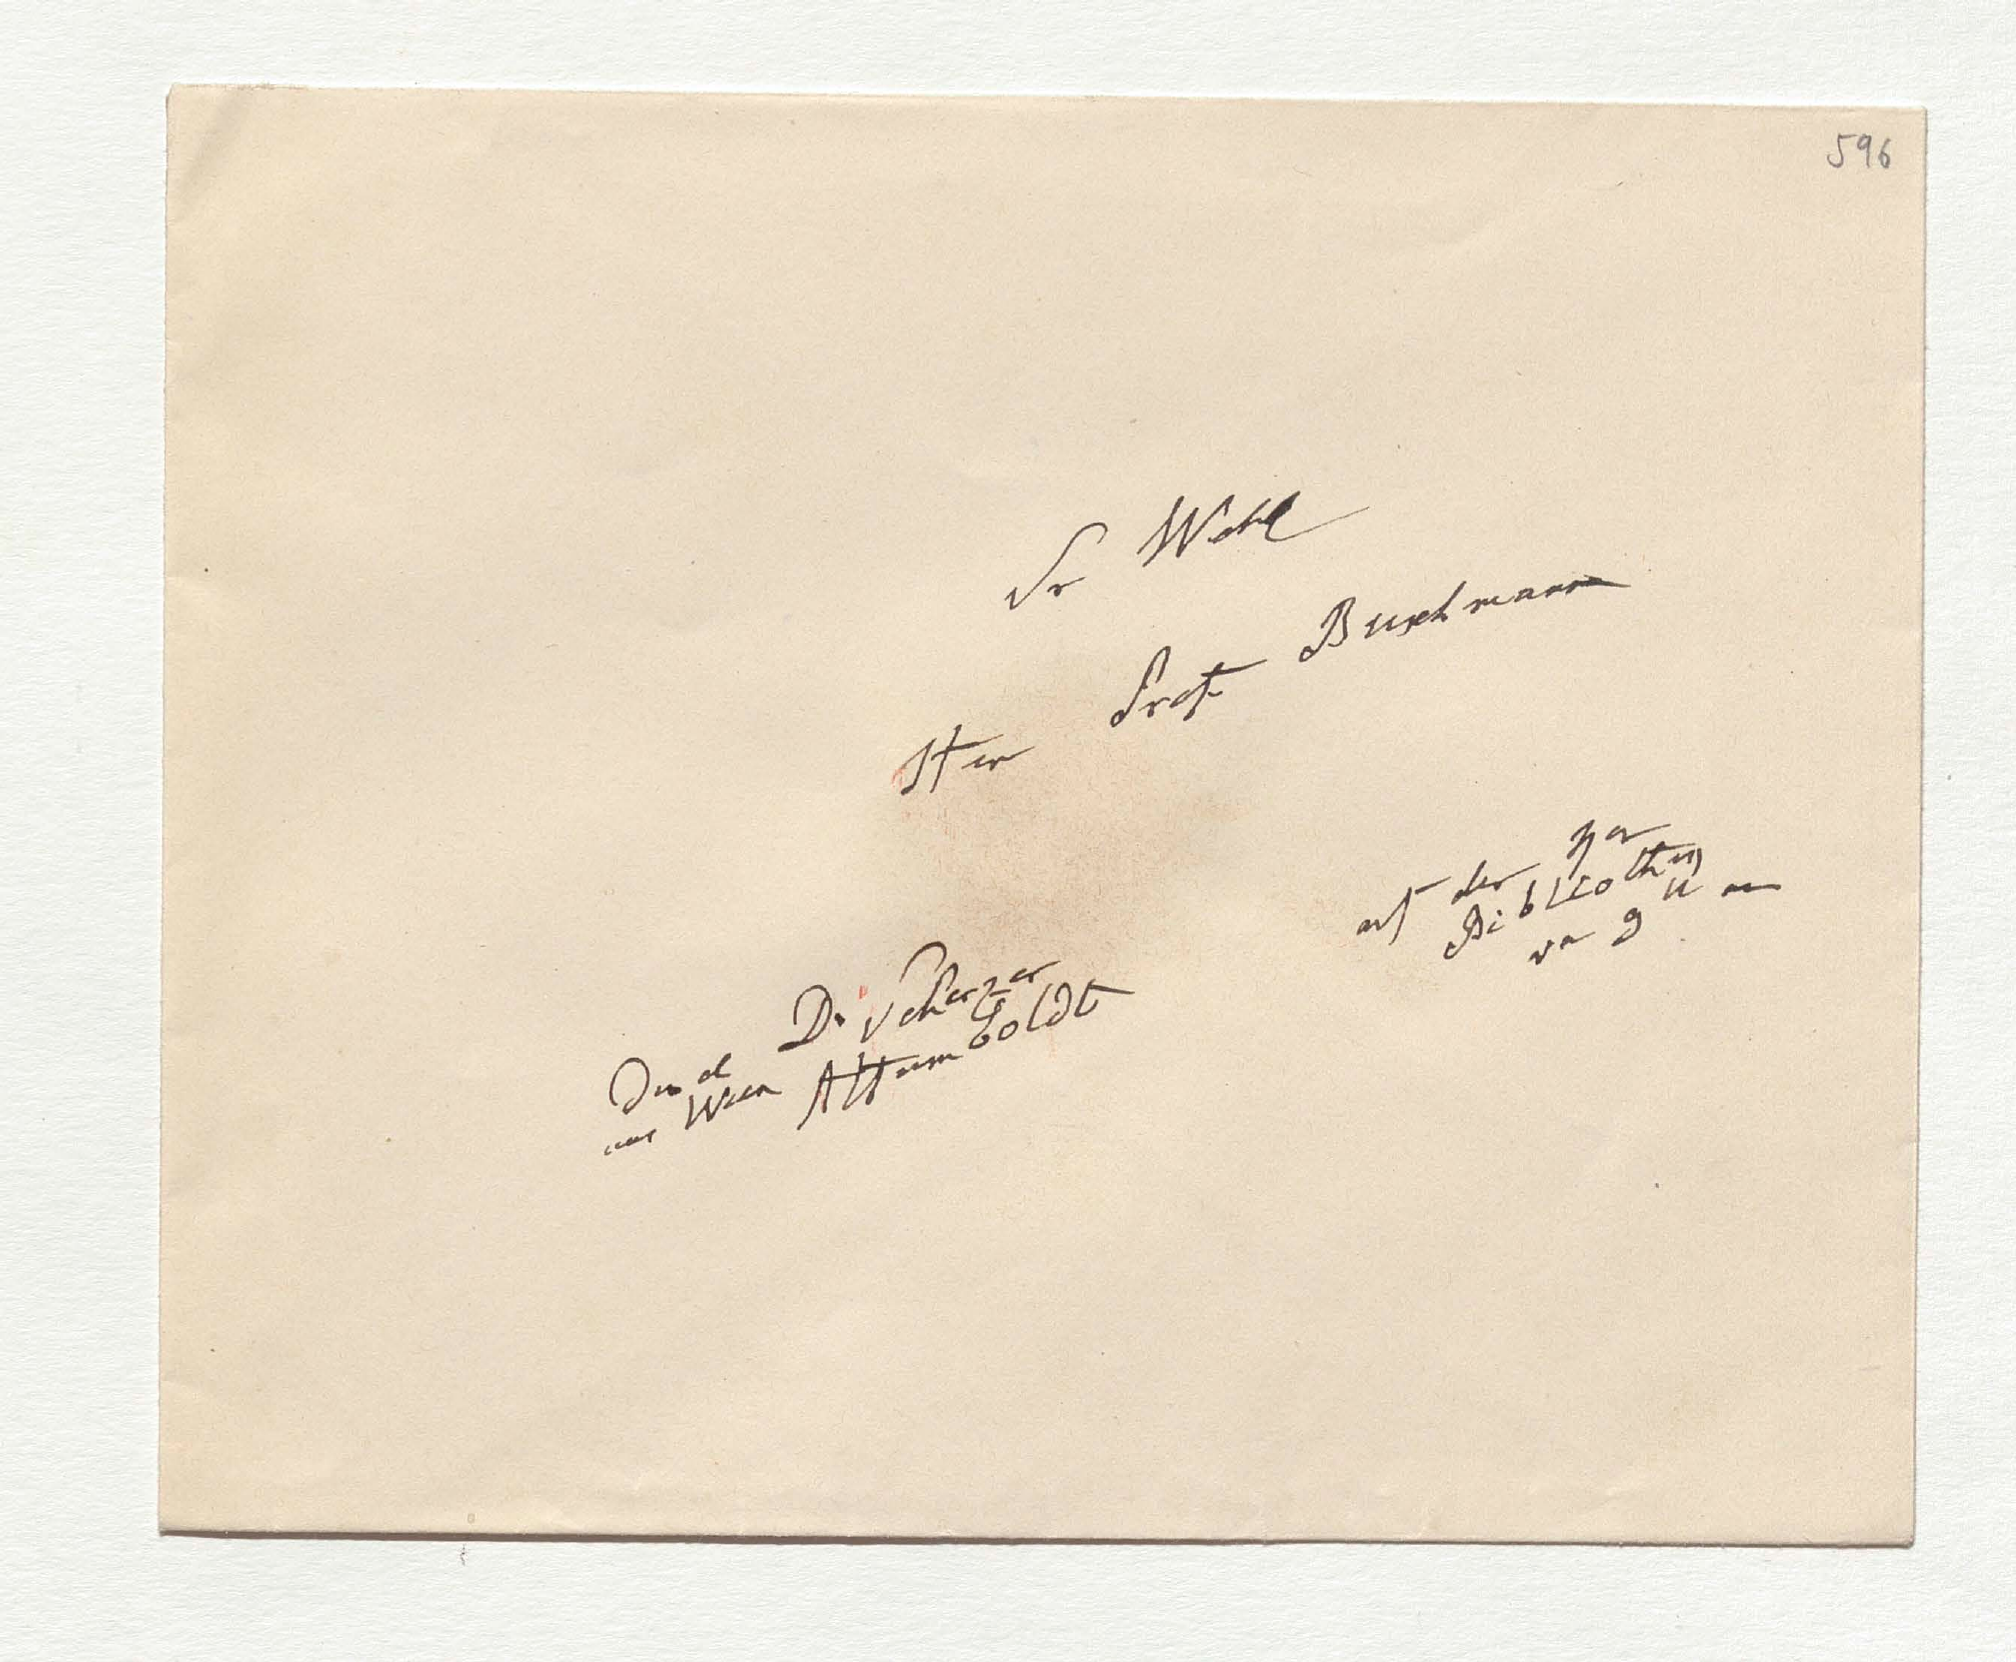 596
Sr Wohl
Herr Prof Buschmann
auf der gr
Bibliothek
vor 9 U
Durch Dr Scherzer
aus Wien AlHumboldt